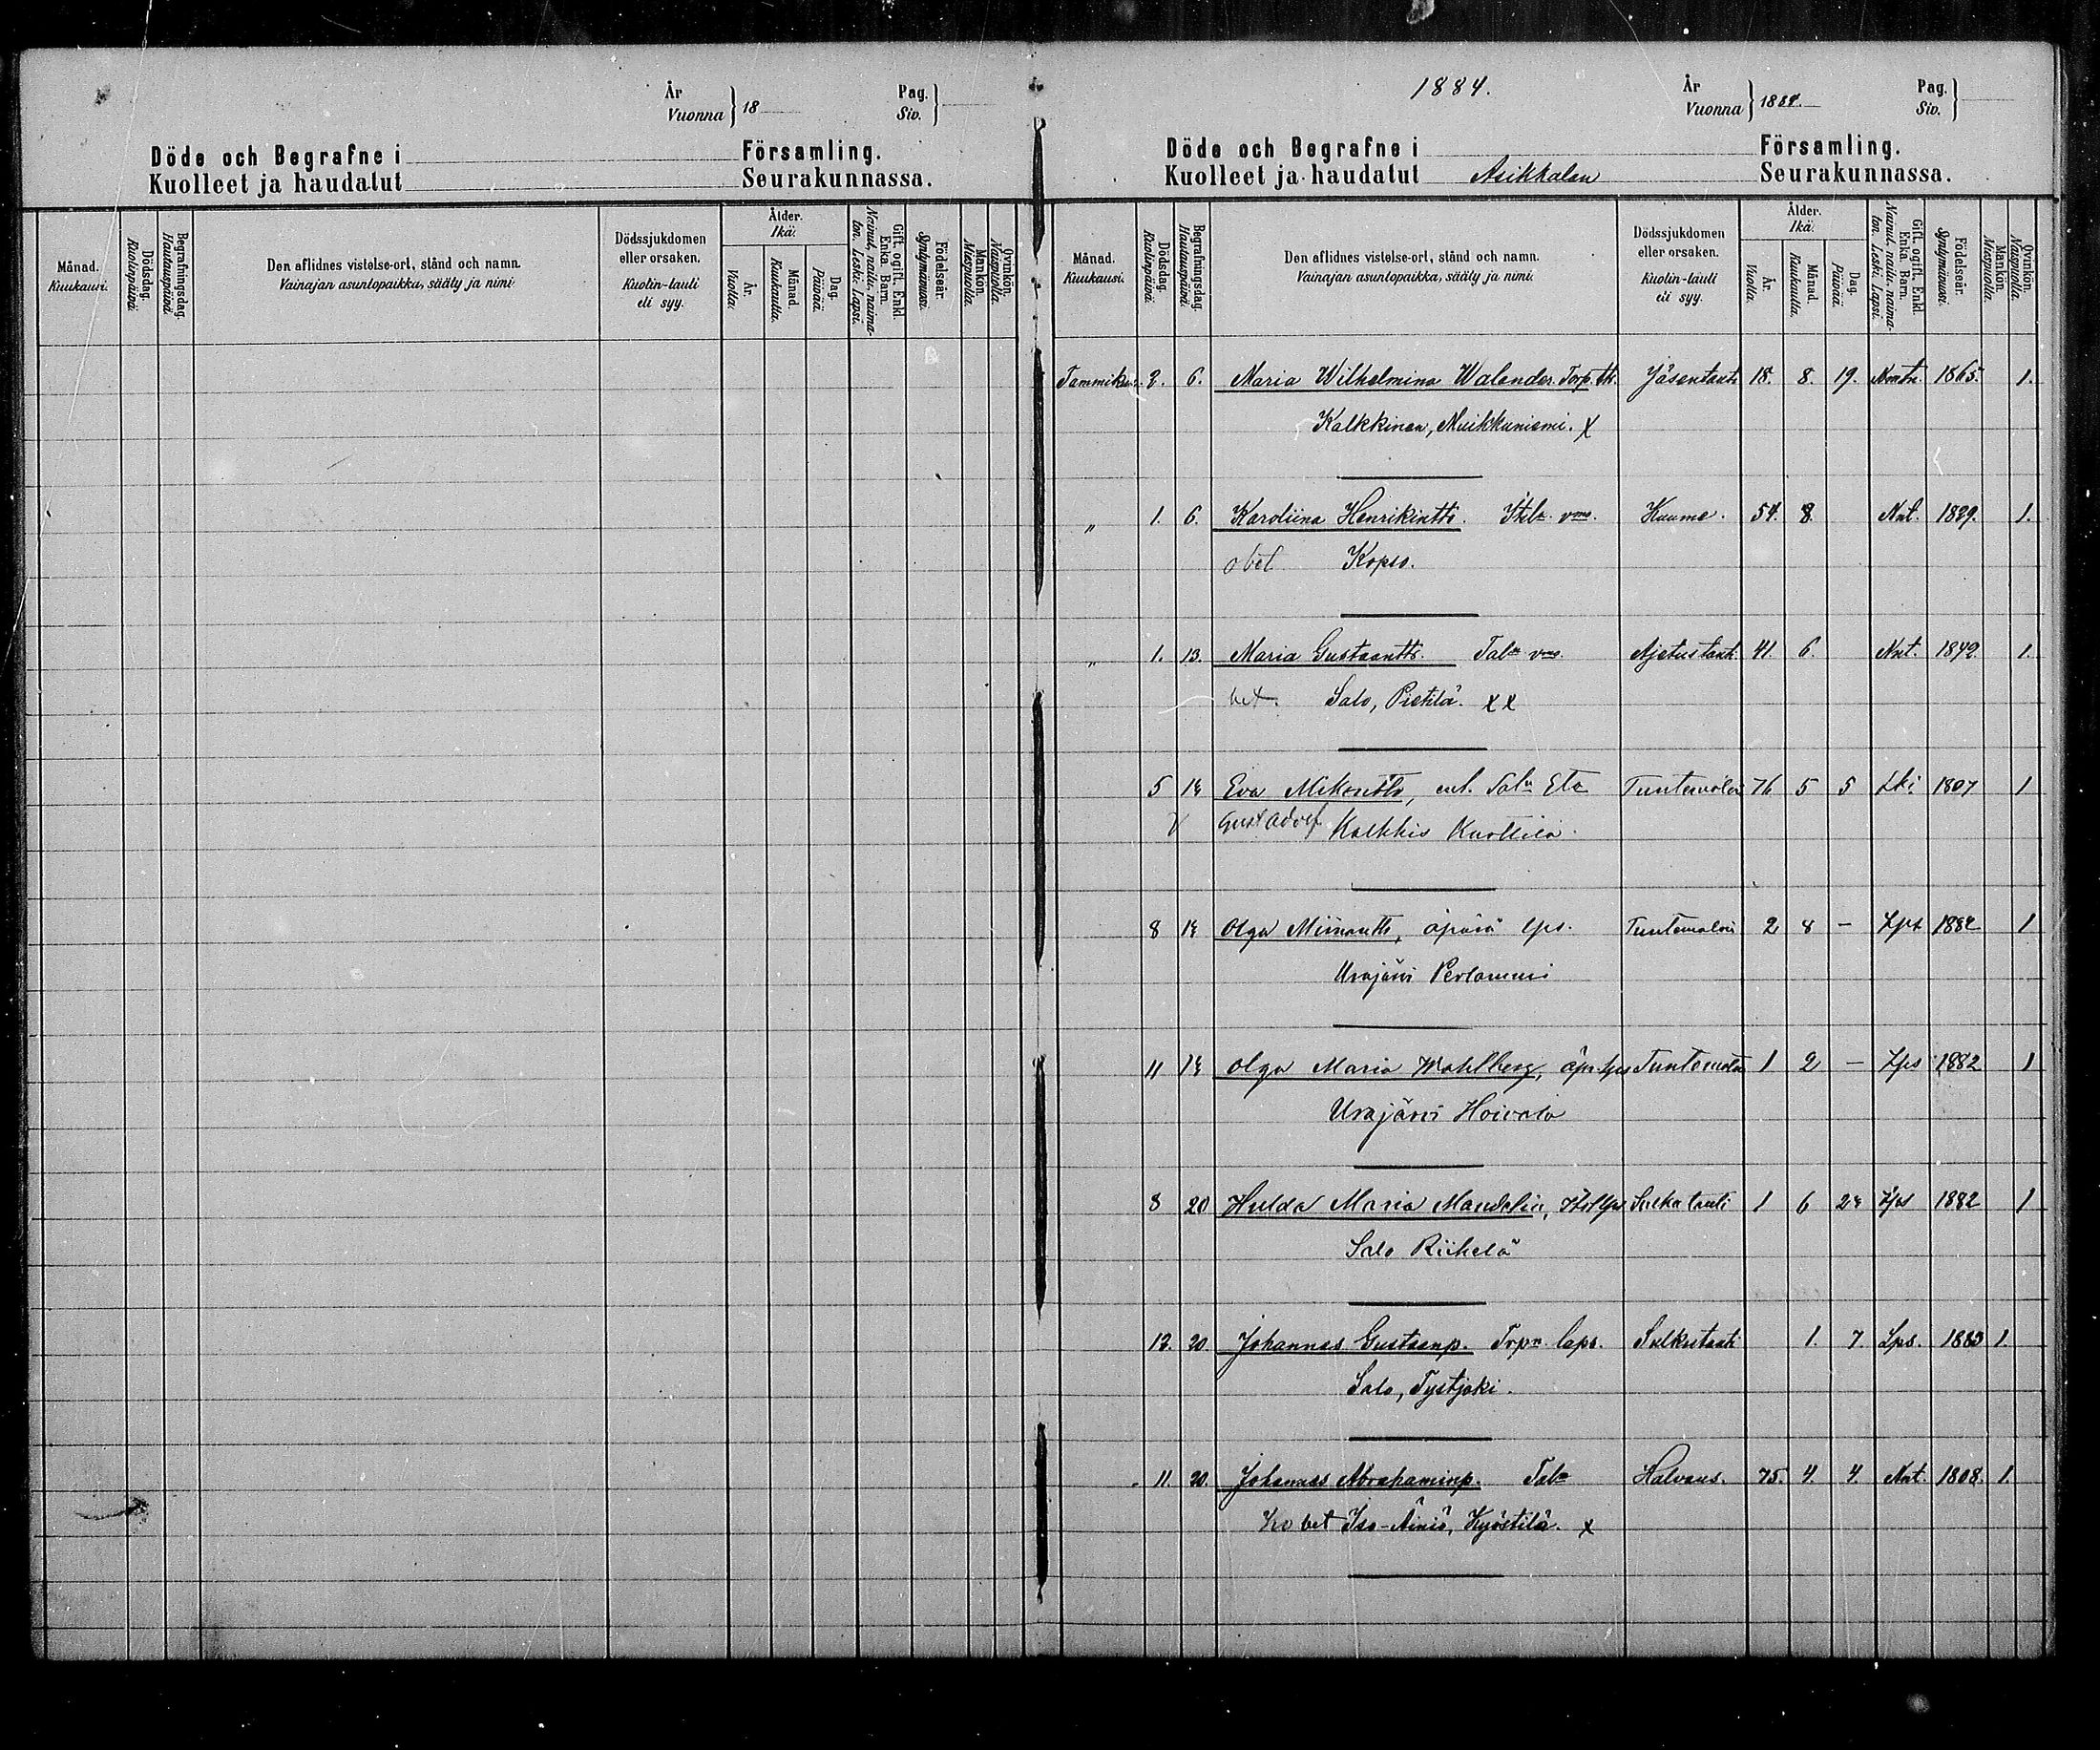 År
Vuonna } 18
Pag.
Siv. }
Döde och Begrafne i Församling.
Kuolleet ja haudatut Seurakunnassa.
Månad. Kuukausi.
Dödsdag. Kuolinpäivä.
Begrafningsdag. Hautauspäivä.
Den aflidnes vistelse-ort, stånd och namn.
Vainajan asuntopaikka, sääty ja nimi.
Dödssjukdomen eller orsaken.
Kuolin-tauti eli syy.
Ålder. Ikä.
År. Vuotta.
Månad. Kuukautta.
Dag. Päivää.
Gift, ogift, Enkl. Enka, Barn. Nainut, nailu, naimaton. Leski. Lapsi.
Födelseår. Syntymävuosi.
Mankön. Miespuolia.
Qvinkön. Naispuolia.
1884.
År
Vuonna } 1884.
Pag.
Siv. }
Döde och Begrafne i Församling.
Kuolleet ja haudatut Asikkalan Seurakunnassa.
Månad. Kuukausi.
Dödsdag. Kuolinpäivä.
Begrafningsdag. Hautauspäivä.
Den aflidnes vistelse-ort, stånd och namn.
Vainajan asuntopaikka, sääty ja nimi.
Dödssjukdomen eller orsaken.
Kuolin-tauti eli syy.
Ålder. Ikä.
År. Vuotta.
Månad. Kuukautta.
Dag. Päivää.
Gift, ogift, Enkl. Enka, Barn. Nainut, nailu, naimaton. Leski. Lapsi.
Födelseår. Syntymävuosi.
Mankön. Miespuolia.
Qvinkön. Naispuolia.
Tammik. 2. 6. Maria Wilhelmina Walender. Torp. Jäsentauti 18. 8. 19. 1865. 1.
Kalkkinen, Muikkuniemi. x
„ 1. 6. Karoliina Henrikintt. Kuume. 54. 8. Nnt. 1829. 1.
obet Kopso.
„ 1. 13. Maria Gustaantt. Tal vmo. Ajetustaut. 41. 6. Nnt. 1842. 1.
bet. Salo, Pietilä. x x
5 14 Eva Mikontt, ent. Tal Tuntematoin 76 5 5 Lki 1807 1
Gust Adolf Kalkkis Kuottila.
8 14 Olga Miinantt, äpärä lps. Tuntematoin 2 8 – Lps 1882 1
Urajärvi Perlammi
11 14 Olga Maria Wahlberg, äpr lps Tuntematoin 1 2 – Lps 1882 1
Urajärvi Hoivala
8 20 Hulda Maria Mandelin, Itsl lps Sulkutauti 1 6 24 Lps 1882 1
Salo Riihelä
12. 20. Johannes Gustaanp. Trpn laps. Sulkutauti 1. 7. Lps. 1883 1.
Salo, Tystjoki.
„ 11. 20. Johannes Abrahaminp. Tal Halvaus. 75. 4. 4. Nnt. 1808. 1.
bet Iso-Äiniö, Kyöstilä. x